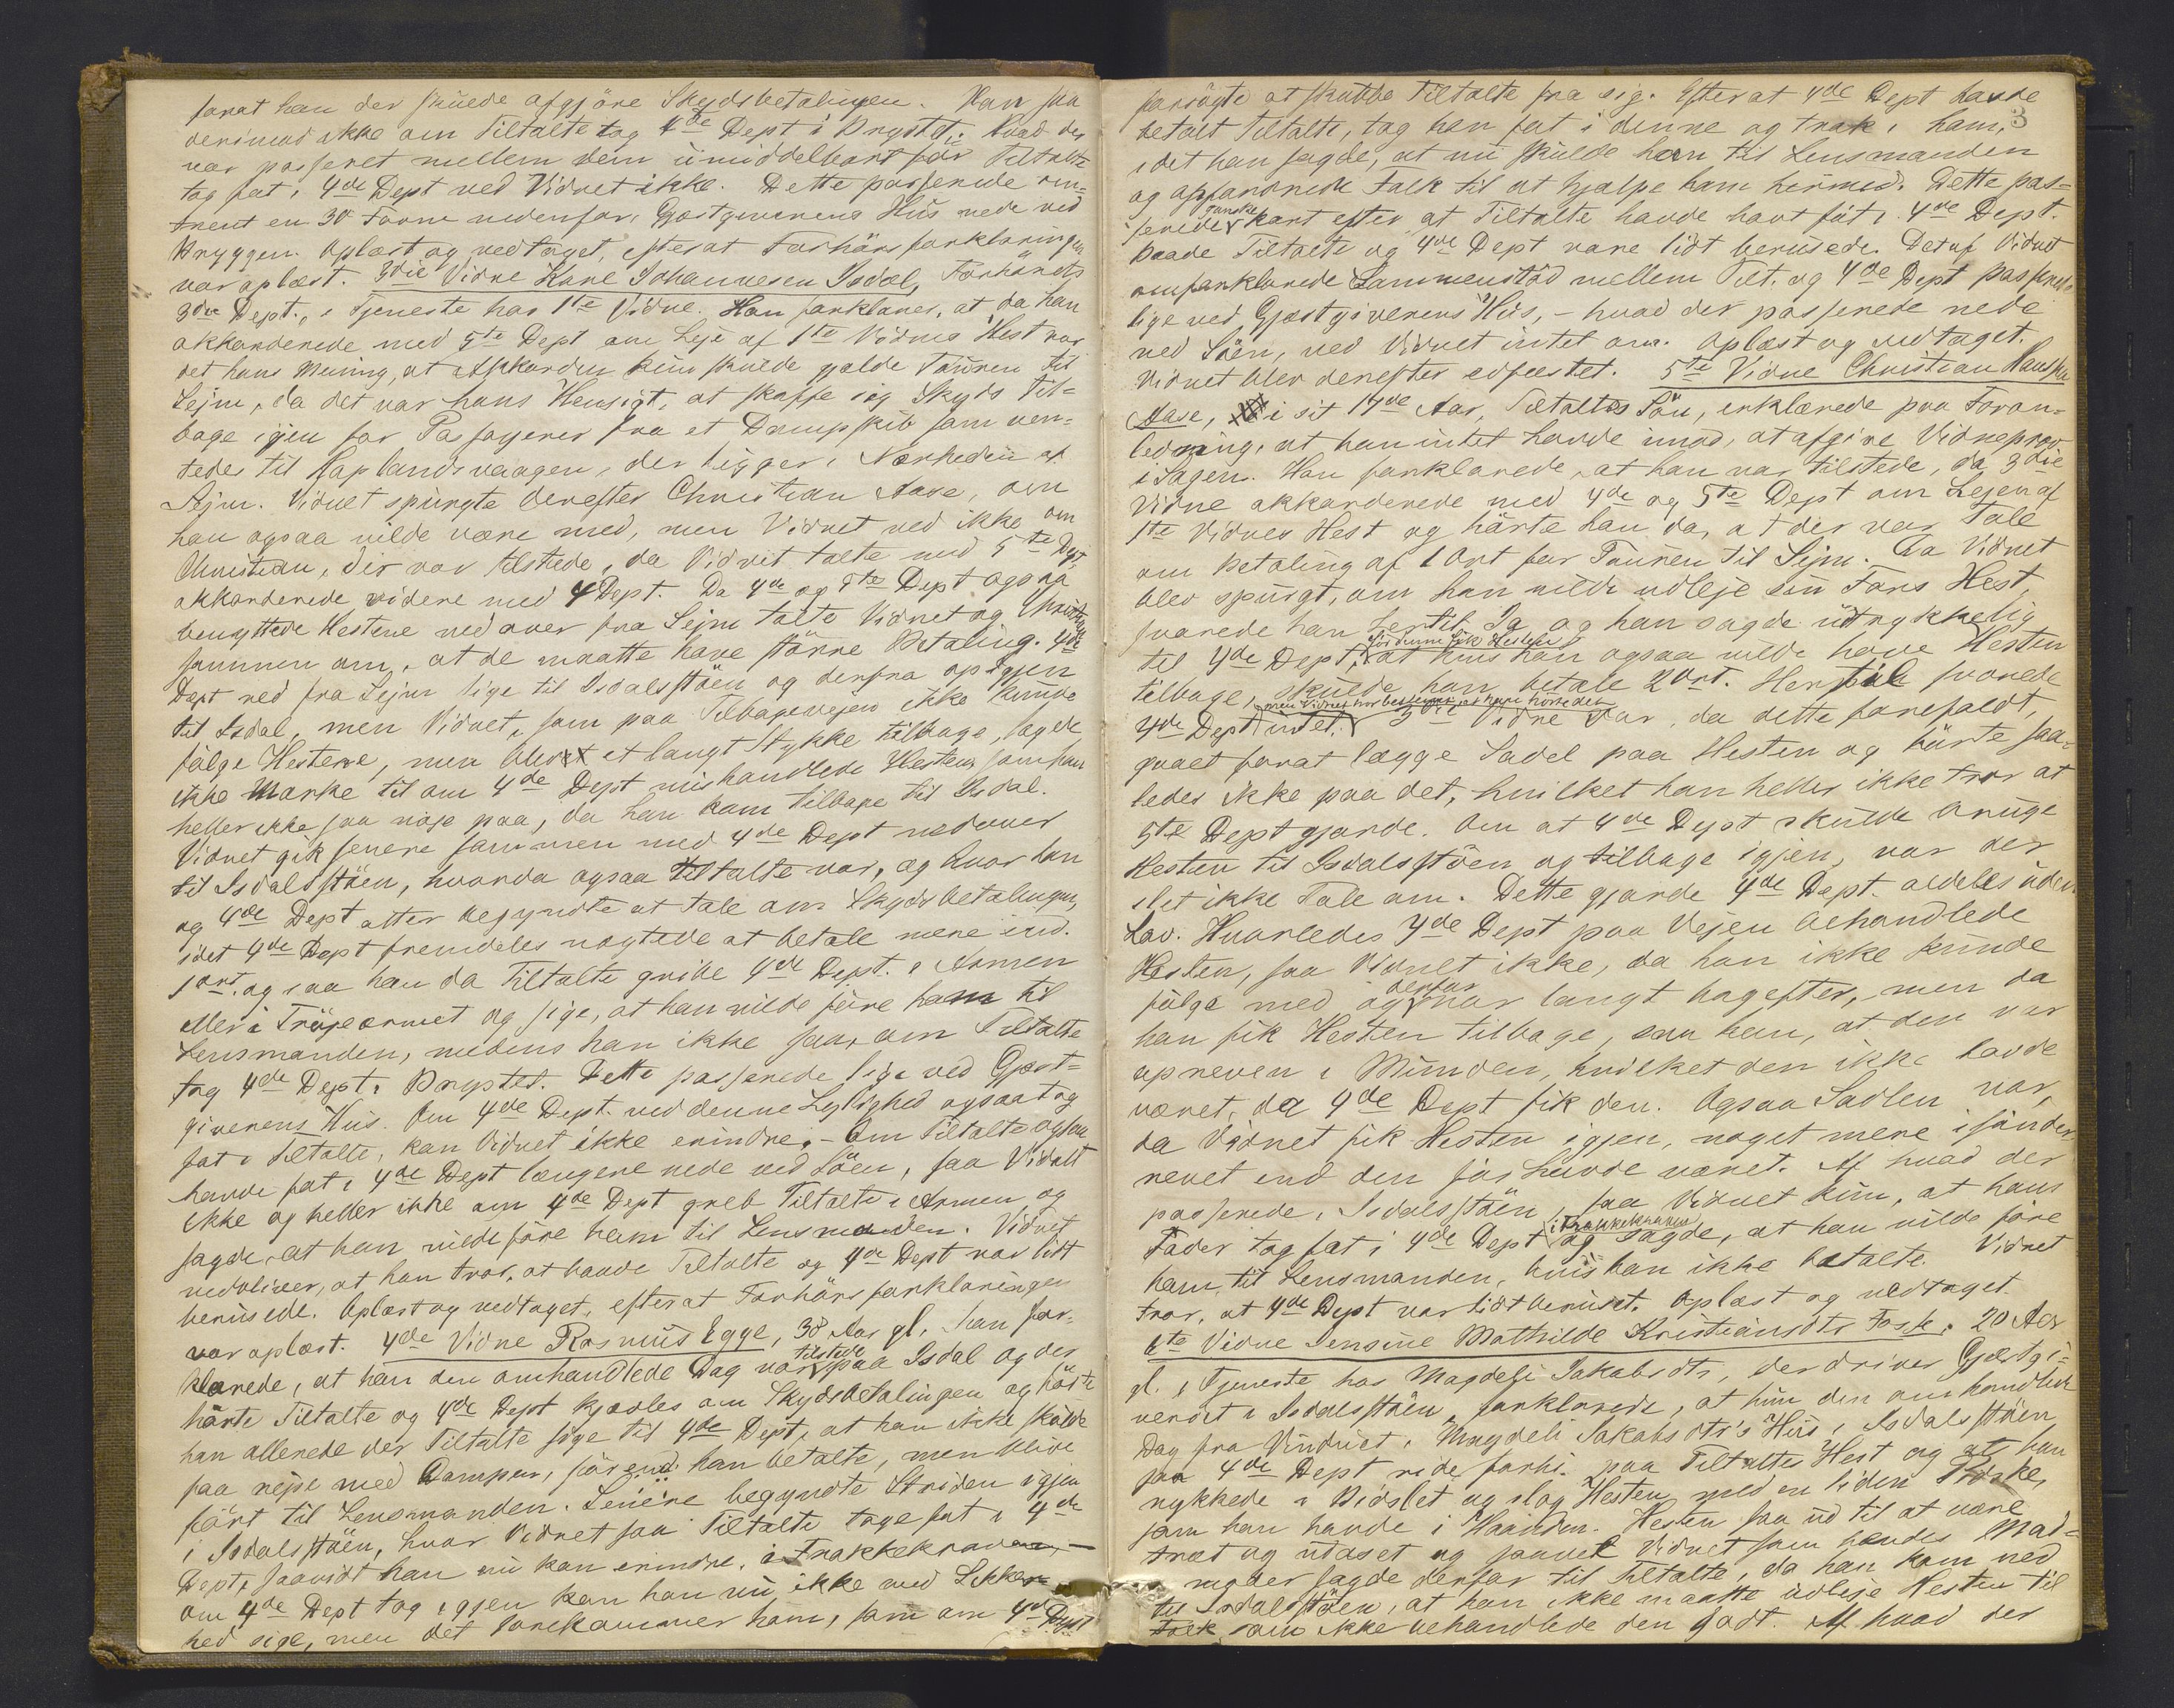 forat han der skulde afgjøre Skydsbetalingen. Han saa
derimod ikke om Tiltalte tog 4de Dept i Brystet. Hvad der
var passeret mellem dem umiddelbart før Tiltalte
tog fat i 4de Dept ved Vidnet ikke. Dette passerede om-
trent en 30 Favne nedenfor Gjæstgiverens Hus nede ved
Bryggen. Oplæst og vedtaget, efterat Forhørsforklaringen
var oplæst. 3die Vidne Kare Johannesen Isdal, Forhørets
3die Dept., i Tjeneste hos 1ste Vidne. Han forklarer, at da han
akkorderede med 5te Dept om Leje af 1ste Vidnes Hest var
det hans Mening, at Akkorden kun skulde gjælde Touren til
Sejm, da det var hans Hensigt, at skaffe sig Skyds til-
bage igjen for Passagerer fra et Dampskib som ven-
tedes til Haplandsvaagen, der ligger i Nærheden af
Sejm. Vidnet spurgte derefter Christian Aase, om
han ogsaa vilde være med, men Vidnet ved ikke om
Christian, der var tilstede, da Vidnet talte med 5te Dept,
akkorderede videre med 4 Dept. Da 4de og 5te Dept ogsaa
benyttede Hestene nedover fra Sejm talte Vidnet og Christian
sammen om, at de maatte have større Betaling. 4de
Dept red fra Sejm lige til Isdalsstøen og derfra op igjen
til Isdal, men Vidnet, som paa Tilbagevejen ikke kunde
følge Hestene, men blev et langt Stykke tilbage, lagde
ikke Mærke til om 4de Dept mishandlede Hesten som han
heller ikke saa nøje paa, da han kom tilbage til Isdal.
Vidnet gik senere sammen med 4de Dept nedover
til Isdalsstøen, hvorda ogsaa Tiltalte var, og hvor han
og 4de Dept atter begyndte at tale om Skydsbetalingen,
idet 4de Dept fremdeles nægtede at betale mere end
1 ort. og saa han da Tiltalte gribe 4de Dept. i Armen
eller i Trøjeærmet og sige, at han vilde føre ham til
Lensmanden, medens han ikke saa, om Tiltalte
tog 4de Dept i Brystet. Dette passerede lige ved Gjæst-
giverens Hus. Om 4de Dept. ved denne Lejlighed ogsaa tog
fat i Tiltalte, kan Vidnet ikke erindre. - Om Tiltalte ogsaa
havde fat i 4de Dept længere nede ved Søen, saa Vidnet
ikke og heller ikke om 4de Dept greb Tiltalte i Armen og
sagde, at han vilde føre ham til Lensmanden. Vidnet
vedbliver, at han tror, at baade Tiltalte og 4de Dept var lidt
berusede. Oplæst og vedtaget, efterat Forhørsforklaringen
var oplæst. 4de Vidne Rasmus Egge, 38 Aar gl, han for-
klarede, at han den omhandlede Dag var tilstede paa Isdal og der
hørte Tiltalte og 4de Dept kjævles om Skydsbetalingen og hørte
han allerede der Tiltalte sige til 4de Dept, at han ikke skulde
faa rejse med Damper, førend han betalte, men blive
ført til Lensmanden. Senere begyndte Striden igjen
i Isdalsstøen, hvor Vidnet saa Tiltalte tage fat i 4de
Dept, saavidt han nu kan erindre, i Frakkekraven, -
om 4de Dept tog igjen kan han nu ikke med Sikker-
hed sige, men det forekommer ham, som om 4de Dept
forsøgte at skubbe Tiltalte fra sig. Efterat 4de Dept havde
betalt Tiltalte, tog han fat i denne og trak i ham,
3
idet han sagde, at nu skulde han til Lensmanden
og opfordrede Folk til at hjælpe ham hermed. Dette pas-
serede ganske kort efter at Tiltalte havde havt fat i 4de Dept.
Baade Tiltalte og 4de Dept vare lidt berusede. Det af Vidnet
omforklarede Sammenstød mellem Tilt. og 4de Dept passerede
lige ved Gjæstgiverens Hus, - hvad der passerede nede
ved Søen, ved Vidnet intet om. Oplæst og vedtaget.
Vidnet blev derefter edfæstet. 5te Vidne Christian Hansen
Aase, i sit 17de Aar, Tiltaltes Søn, erklærede paa Foran-
ledning, at han intet havde imod, at afgive Vidneprov
i Sagen. Han forklarede, at han var tilstede, da 3die
Vidne akkorderede med 4de og 5te Dept om Lejen af
1ste Vidnes Hest og hørte han da, at der var Tale
om Betaling af 1 Ort for Touren til Sejm. Da Vidnet
blev spurgt, om han vilde udleje sin Fars Hest,
svarede han hertil Ja og han sagde udtrykkelig
til 4de Dept, før denne fik Hesten at hvis han ogsaa vilde have Hesten
tilbage, skulde han betale 2 Ort. Hertil svarede
4de Dept intet. men Vidnet tror bestemt, at han hørte det 3die Vidne var, da dette forefaldt,
gaaet forat lægge Sadel paa Hesten og hørte saa-
ledes ikke paa det, hvilket han heller ikke tror at
5te Dept gjorde. Om at 4de Dept skulde bruge
Hesten til Isdalsstøen og tilbage igjen, var der
slet ikke Tale om. Dette gjorde 4de Dept. aldeles uden
Lov. Hvorledes 4de Dept paa Vejen behandlede
Hesten, saa Vidnet ikke, da han ikke kunde
følge med og derfor var langt bagefter, men da
han fik Hesten tilbage, saa han, at den var
opreven i Munden, hvilket den ikke havde
været, da 4de Dept fik den. Ogsaa Sadlen var,
da Vidnet fik Hesten igjen, noget mere isønder-
revet end den før havde været. Af hvad der
passerede i Isdalsstøen, saa Vidnet kun, at hans
Fader tog fat i 4de Dept i Frakkekraven og sagde, at han vilde føre
ham til Lensmanden, hvis han ikke betalte. Vidnet
tror, at 4de Dept var lidt beruset. Oplæst og vedtaget.
6te Vidne Jensine Mathilde Kristiansdtr Foss, 20 Aar
gl. i Tjeneste hos Magdeli Jakobsdtr, der driver Gjæstgi-
veriet i Isdalsstøen, forklarede, at hun den omhandlede
Dag fra Vinduet i Magdeli Jakobsdtr's Hus i Isdalsstøen
saa 4de Dept ride forbi paa Tiltaltes Hest og at han
rykkede i Bidslet og slog Hesten med en liden Pidske,
som han havde i Haanden. Hesten saa ud til at være
træt og udaset og Vidnet som hendes Mad-
moder sagde derfor til Tiltalte, da han kom ned
til Isdalsstøen, at han ikke maatte udleje Hesten til
Folk som ikke behandlede den godt. Af hvad der